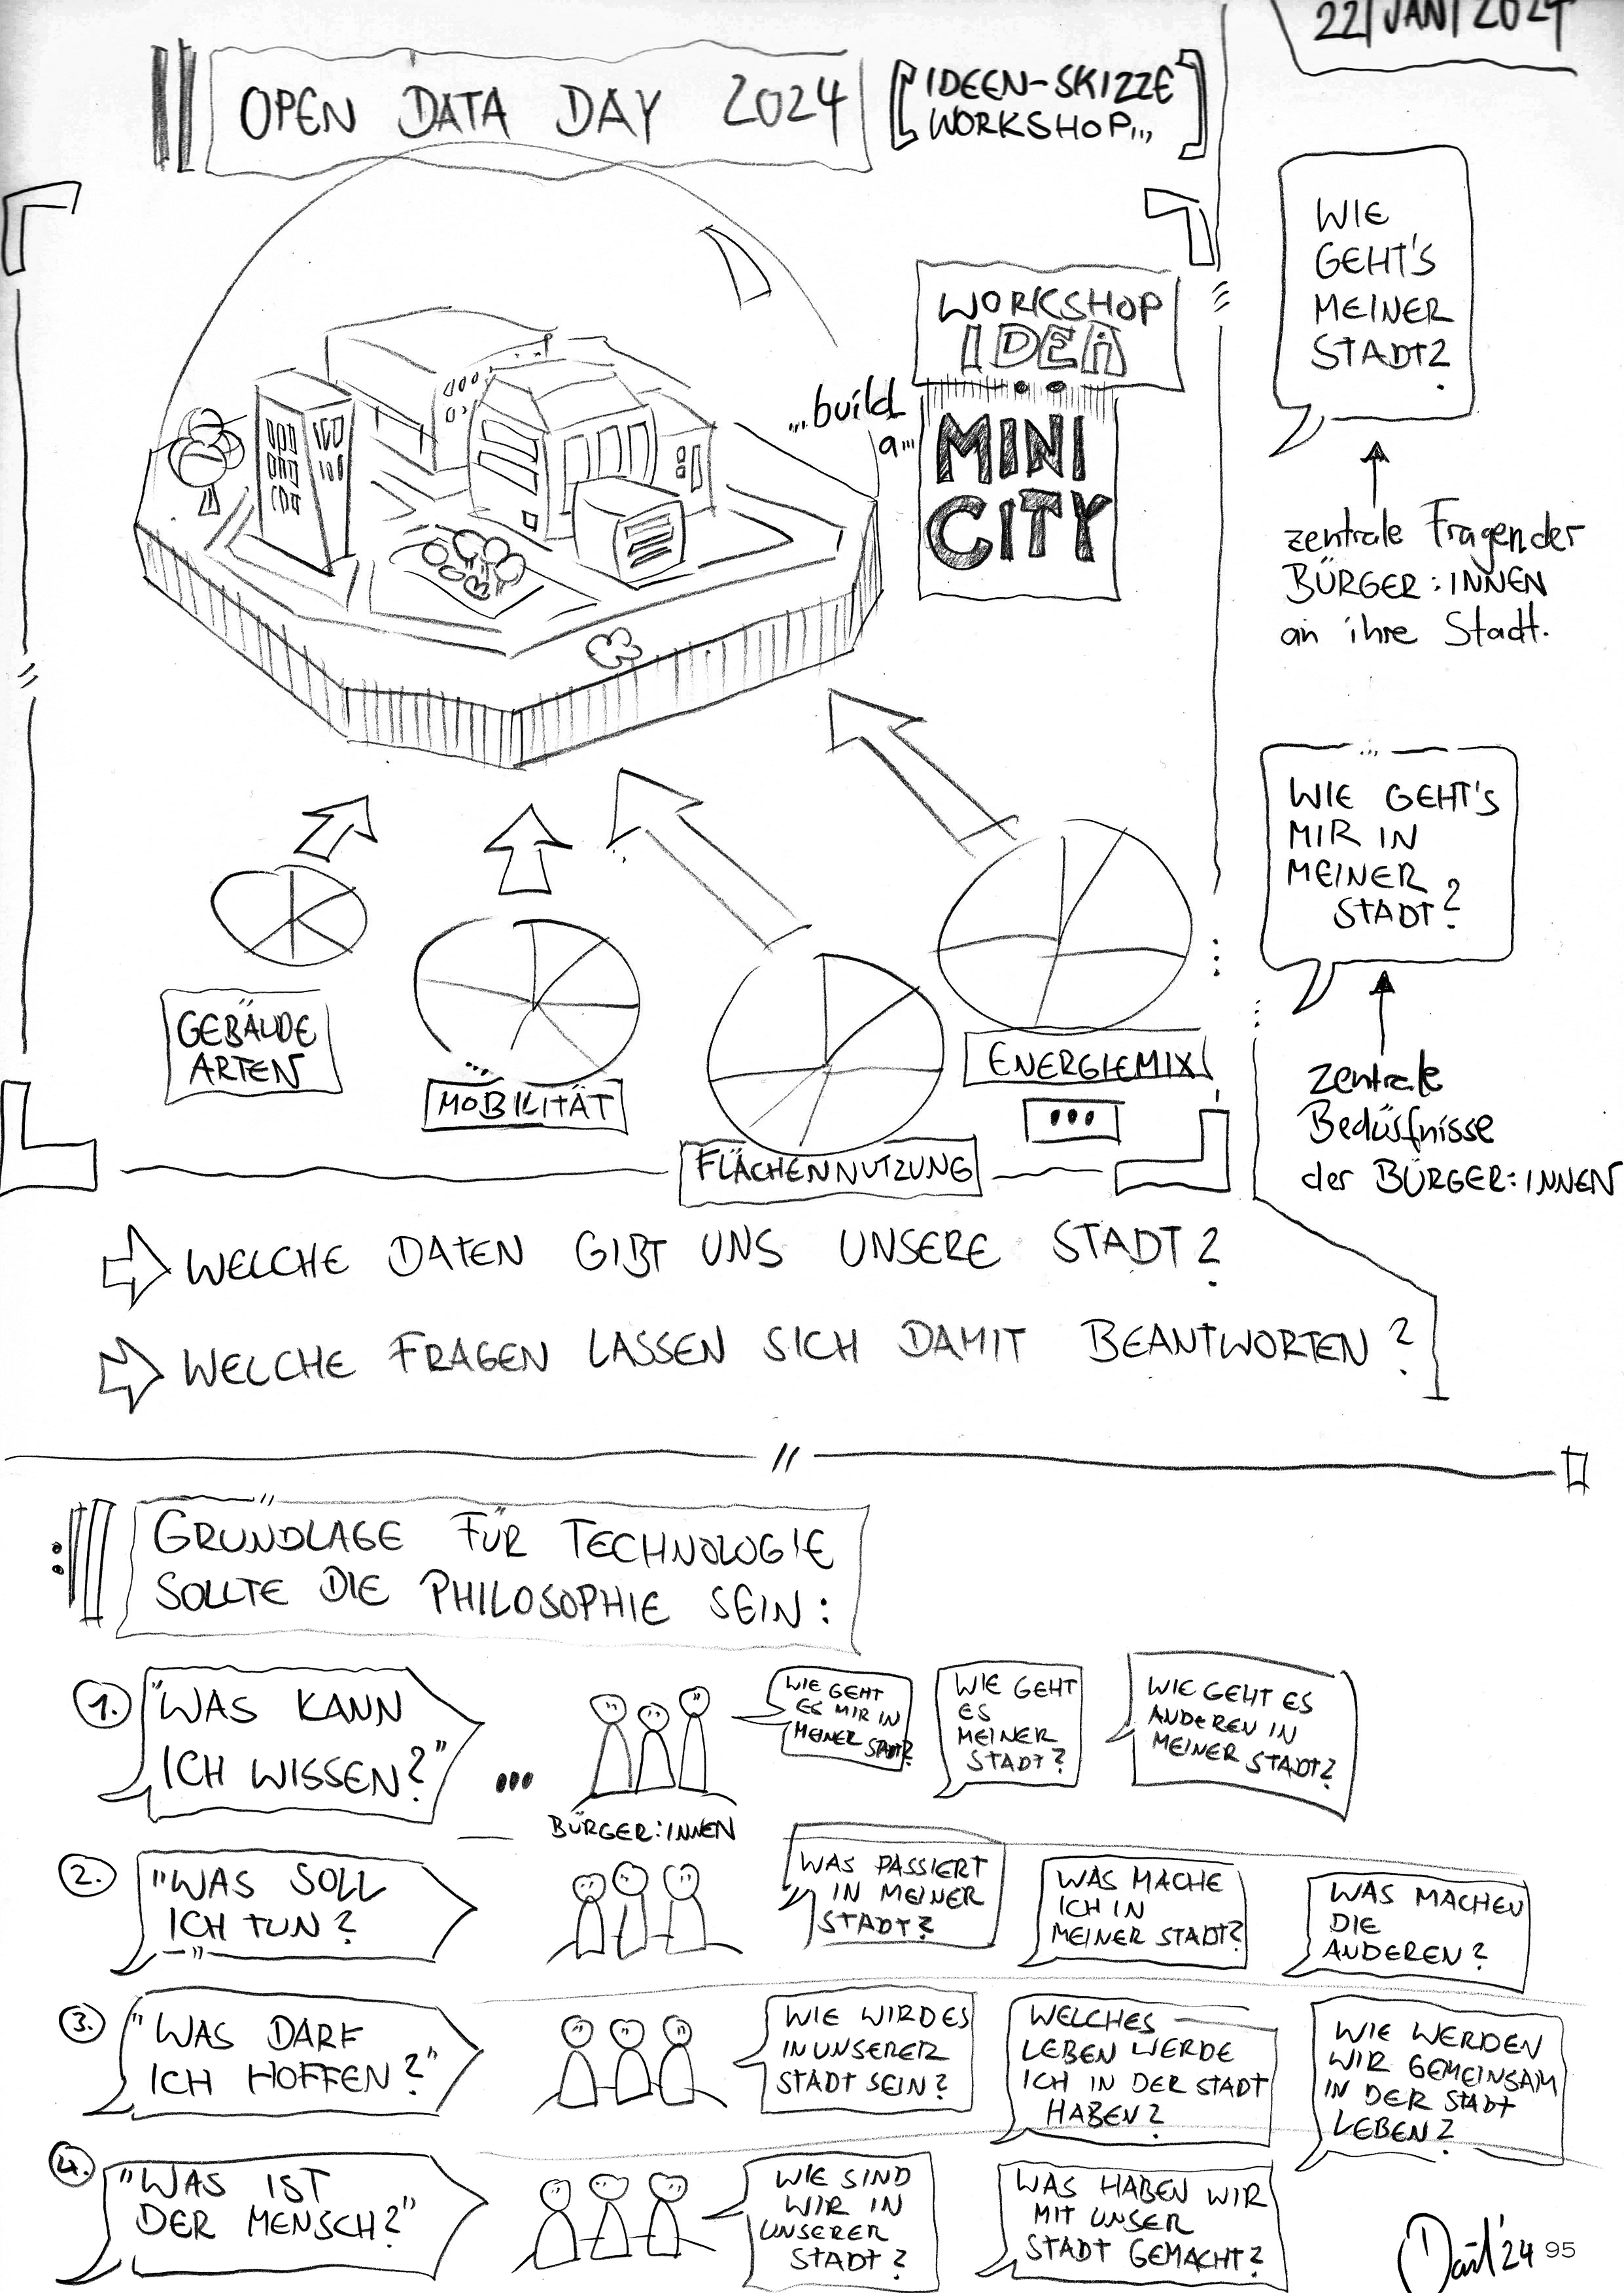 22/JAN/2024
OPEN DATA DAY 2024
IDEEN-SKIZZE
WORKSHOP...
WORKSHOP
IDEA
...build
a...
MINI
CITY
WIE
GEHT'S
MEINER
STADT?
zentrale Fragen der
BÜRGER:INNEN
an ihre Stadt.
WIE GEHT'S
MIR IN
MEINER
STADT?
zentrale
Bedürfnisse
der BÜRGER:INNEN
GEBÄUDE
ARTEN
...
MOBILITÄT
FLÄCHENNUTZUNG
ENERGIEMIX
...
WELCHE DATEN GIBT UNS UNSERE STADT?
WELCHE FRAGEN LASSEN SICH DAMIT BEANTWORTEN?
GRUNDLAGE FÜR TECHNOLOGIE
SOLLTE DIE PHILOSOPHIE SEIN:
1.
"WAS KANN
ICH WISSEN?"
...
BÜRGER:INNEN
WIE GEHT
ES MIR IN
MEINER STADT?
WIE GEHT
ES
MEINER
STADT?
WIE GEHT ES
ANDEREN IN
MEINER STADT?
2.
"WAS SOLL
ICH TUN?
"
WAS PASSIERT
IN MEINER
STADT?
WAS MACHE
ICH IN
MEINER STADT?
WAS MACHEN
DIE
ANDEREN?
3.
"WAS DARF
ICH HOFFEN?"
WIE WIRD ES
IN UNSERER
STADT SEIN?
WELCHES
LEBEN WERDE
ICH IN DER STADT
HABEN?
WIE WERDEN
WIR GEMEINSAM
IN DER STADT
LEBEN?
4.
"WAS IST
DER MENSCH?"
WIE SIND
WIR IN
UNSERER
STADT?
WAS HABEN WIR
MIT UNSER
STADT GEMACHT?
'24 95